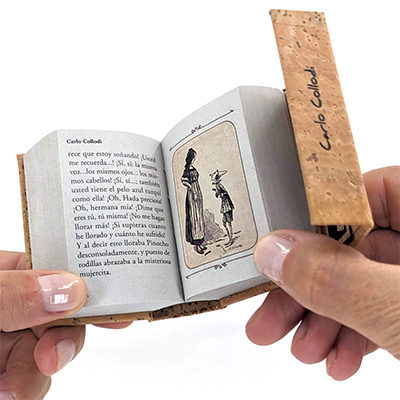 Carlo Collodi
rece que estoy soñando! ¡Usted
me recuerda...! ¡Sí, sí, la misma
voz...los mismos ojos... los mis-
mos cabellos! ¡Sí, sí...; también
usted tiene el pelo azul turquí
como ella! ¡Oh, Hada preciosa!
¡Oh, hermana mía! ¡Dime que
eres tú, tú misma! ¡No me hagas
llorar más! ¡Si supieras cuanto
he llorado y cuánto he sufrido!
Y al decir esto lloraba Pinocho
desconsoladamente, y puesto de
rodillas abrazaba a la misteriosa
mujercita.
Carlo Collodi